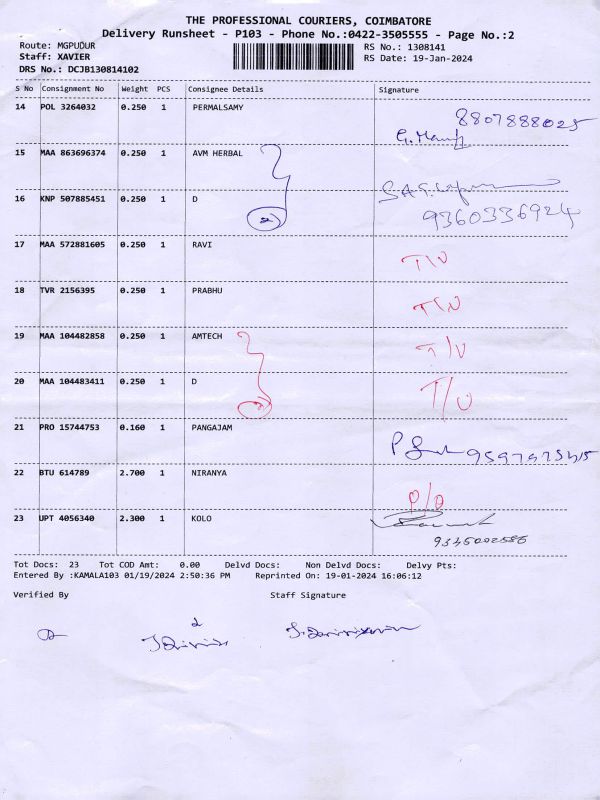 THE PROFESSIONAL COURIERS, COIMBATORE
Delivery Runsheet - P103 - Phone No.:0422-3505555 - Page No.:2
Route: MGPUDUR
RS No.: 1308141
Staff: XAVIER
RS Date: 19-Jan-2024
DRS No.: DCJB130814102
S No Consignment No Weight PCS Consignee Details Signature
14 POL 3264032 0.250 1 PERMALSAMY
8807888025
15 MAA 863696374 0.250 1 AVM HERBAL
16 KNP 507885451 0.250 1 D
9360336924
17 MAA 572881605 0.250 1 RAVI
18 TVR 2156395 0.250 1 PRABHU
19 MAA 104482858 0.250 1 AMTECH
20 MAA 104483411 0.250 1 D T/U
21 PRO 15744753 0.160 1 PANGAJAM
22 BTU 614789 2.700 1 NIRANYA
23 UPT 4056340 2.300 1 KOLO
Tot Docs: 23 Tot COD Amt: 0.00 Delvd Docs: Non Delvd Docs: Delvy Pts:
Entered By :KAMALA103 01/19/2024 2:50:36 PM Reprinted On: 19-01-2024 16:06:12
Verified By Staff Signature